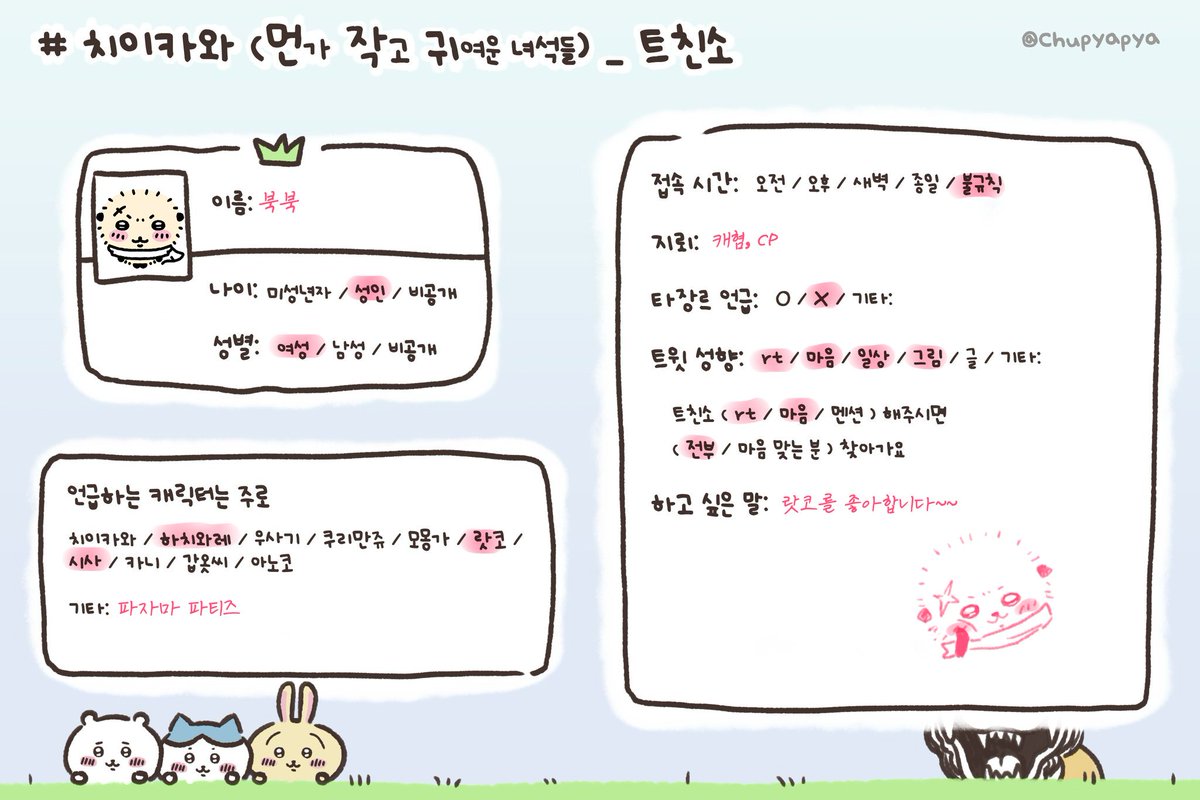 # 치이카와 (먼가 작고 귀여운 녀석들) _ 트친소
@Chupyapya
이름: 북북
나이: 미성년자 / 성인 / 비공개
성별: 여성 / 남성 / 비공개
언급하는 캐릭터는 주로
치이카와 / 하치와레 / 우사기 / 쿠리만쥬 / 모몽가 / 랏코 /
시사 / 카니 / 갑옷씨 / 아노코
기타: 파자마 파티즈
접속 시간: 오전 / 오후 / 새벽 / 종일 / 불규칙
지뢰: 캐혐, CP
타장르 언급: O / X / 기타:
트윗 성향: rt / 마음 / 일상 / 그림 / 글 / 기타:
트친소 ( rt / 마음 / 멘션 ) 해주시면
( 전부 / 마음 맞는 분 ) 찾아가요
하고 싶은 말: 랏코를 좋아합니다~~